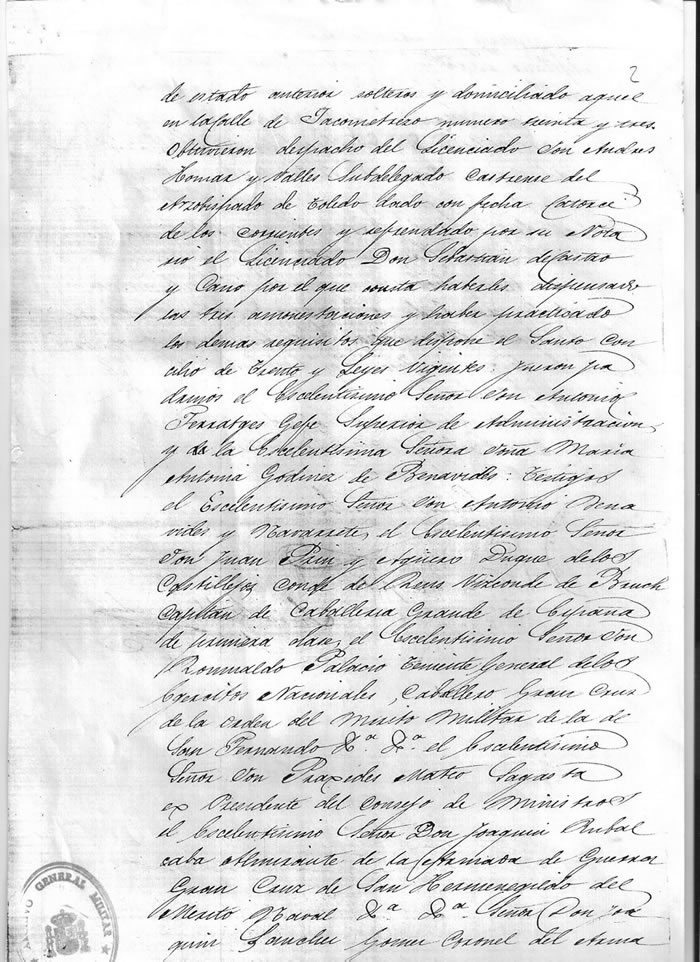 2
de estado anterior solteros y domiciliado aquel
en la Calle de Jacometrezo numero treinta y tres.
Obtuvieron despacho del Licenciado Don Andres
Homar y Valles Subdelegado Castrense del
Arzobispado de Toledo dado con fecha Catorce
de los corrientes y refrendado por su Nota
rio el Licenciado Don Sebastian de Castro
y Cano por el que consta haberles dispensado
las tres amonestaciones y haber practicado
los demas requisitos que dispone el Santo Con
cilio de Trento y Leyes Vigentes: fueron pa
drinos el Escelentisimo Señor Don Antonio
Ferratges Gefe Superior de Administracion
y la Escelentisima Señora Doña Maria
Antonia Godinez de Benavides: Testigos
el Escelentisimo Señor Don Antonio Bena
vides y Navarrete, el Escelentisimo Señor
Don Juan Prim y Agüero Duque de los
Castillejos Conde de Reus Vizconde de Bruch
Capitan de Caballeria Grande de España
de primera clase, el Escelentisimo Señor Don
Romualdo Palacio Teniente General de los
Ejercitos Nacionales, Caballero Gran Cruz
de la orden del Merito Militar de la de
San Fernando &ª &ª el Escelentisimo
Señor Don Praxedes Mateo Sagasta
ex Presidente del Consejo de Ministros
el Escelentisimo Señor Don Joaquin Rubal
caba Almirante de la Armada de Guerra
Gran Cruz de San Hermenegildo del
Merito Naval &ª &ª Señor Don Joa
quin Sanchez Gomez Coronel del Arma
ARCHIVO GENERAL MILITAR